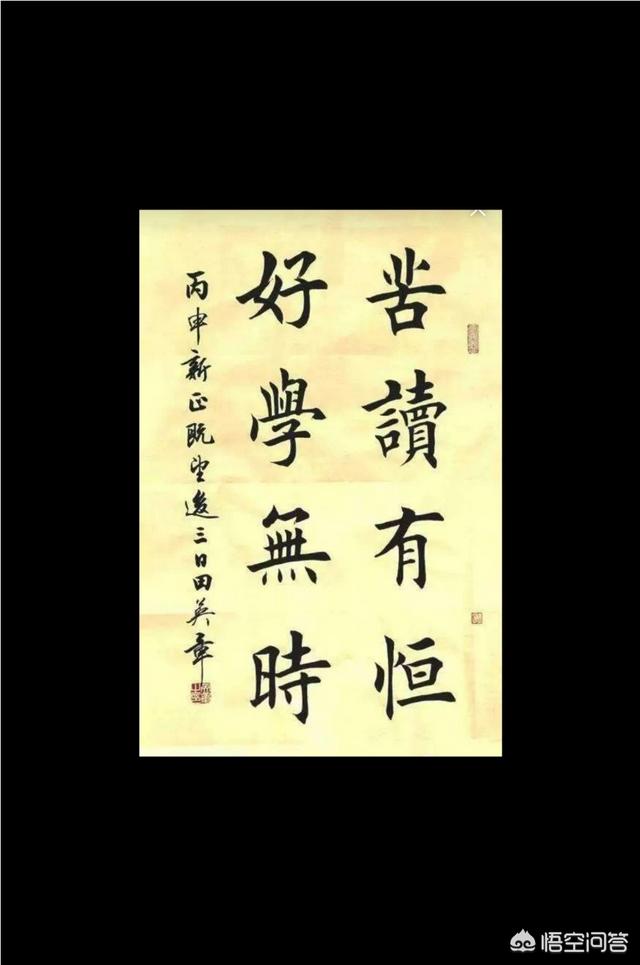 苦讀有恒
好學無時
丙申新正既望後三日田英章
悟空问答